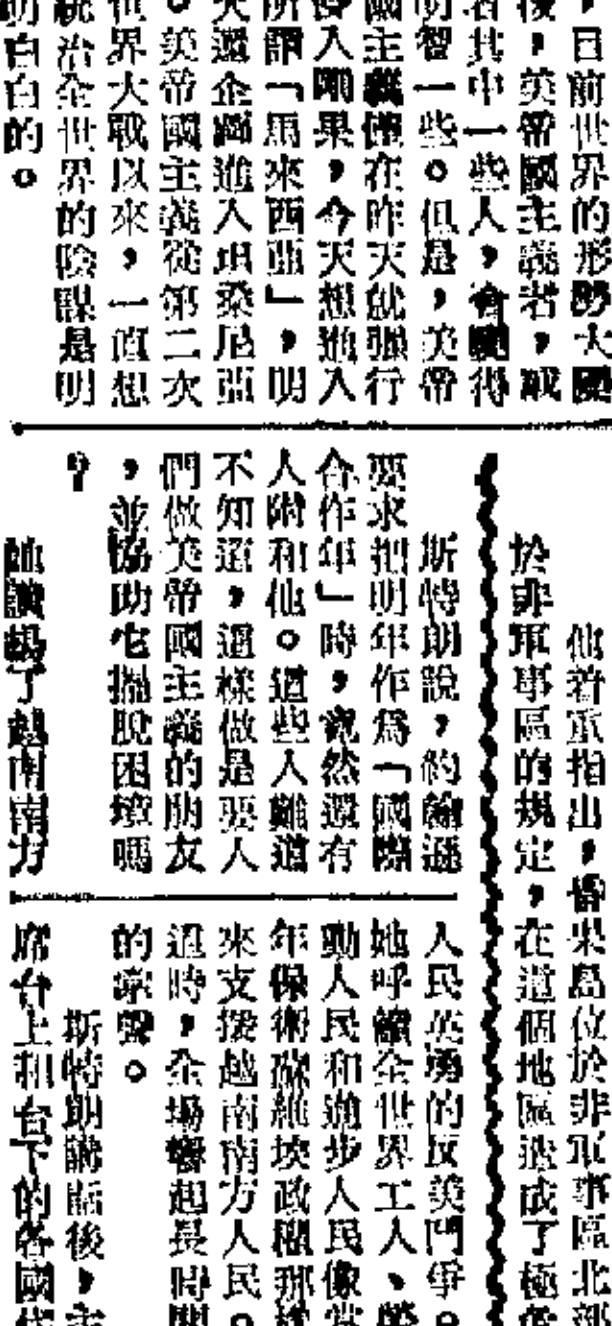 ，目前世界的形勢大
後，美帝國主義者，或
者其中一些人，會變得
明智一些。但是，美帝
國主義僅在昨天就强行
侵入剛果，今天想進入
所謂「馬來西亞」，明
天還企圖進入坦桑尼亞
。美帝國主義從第二次
世界大戰以來，一直想
統治全世界的陰謀是明
明白白的。
他着重指出，昏果島位於非軍事區北部
於非軍事區的規定，在這個地區造成了極危
斯特朗說，約翰遜
要求把明年作爲「國際
合作年」時，竟然還有
人附和他。這些人難道
不知道，這樣做是要人
們做美帝國主義的朋友
，並協助它擺脫困境嗎
？
她讚揚了越南南方
人民英勇的反美鬥爭。
她呼籲全世界工人、勞
動人民和進步人民像當
年保衛蘇維埃政權那樣
來支援越南南方人民。
這時，全場響起長時間
的掌聲。
斯特朗講話後，主
席台上和台下的各國代